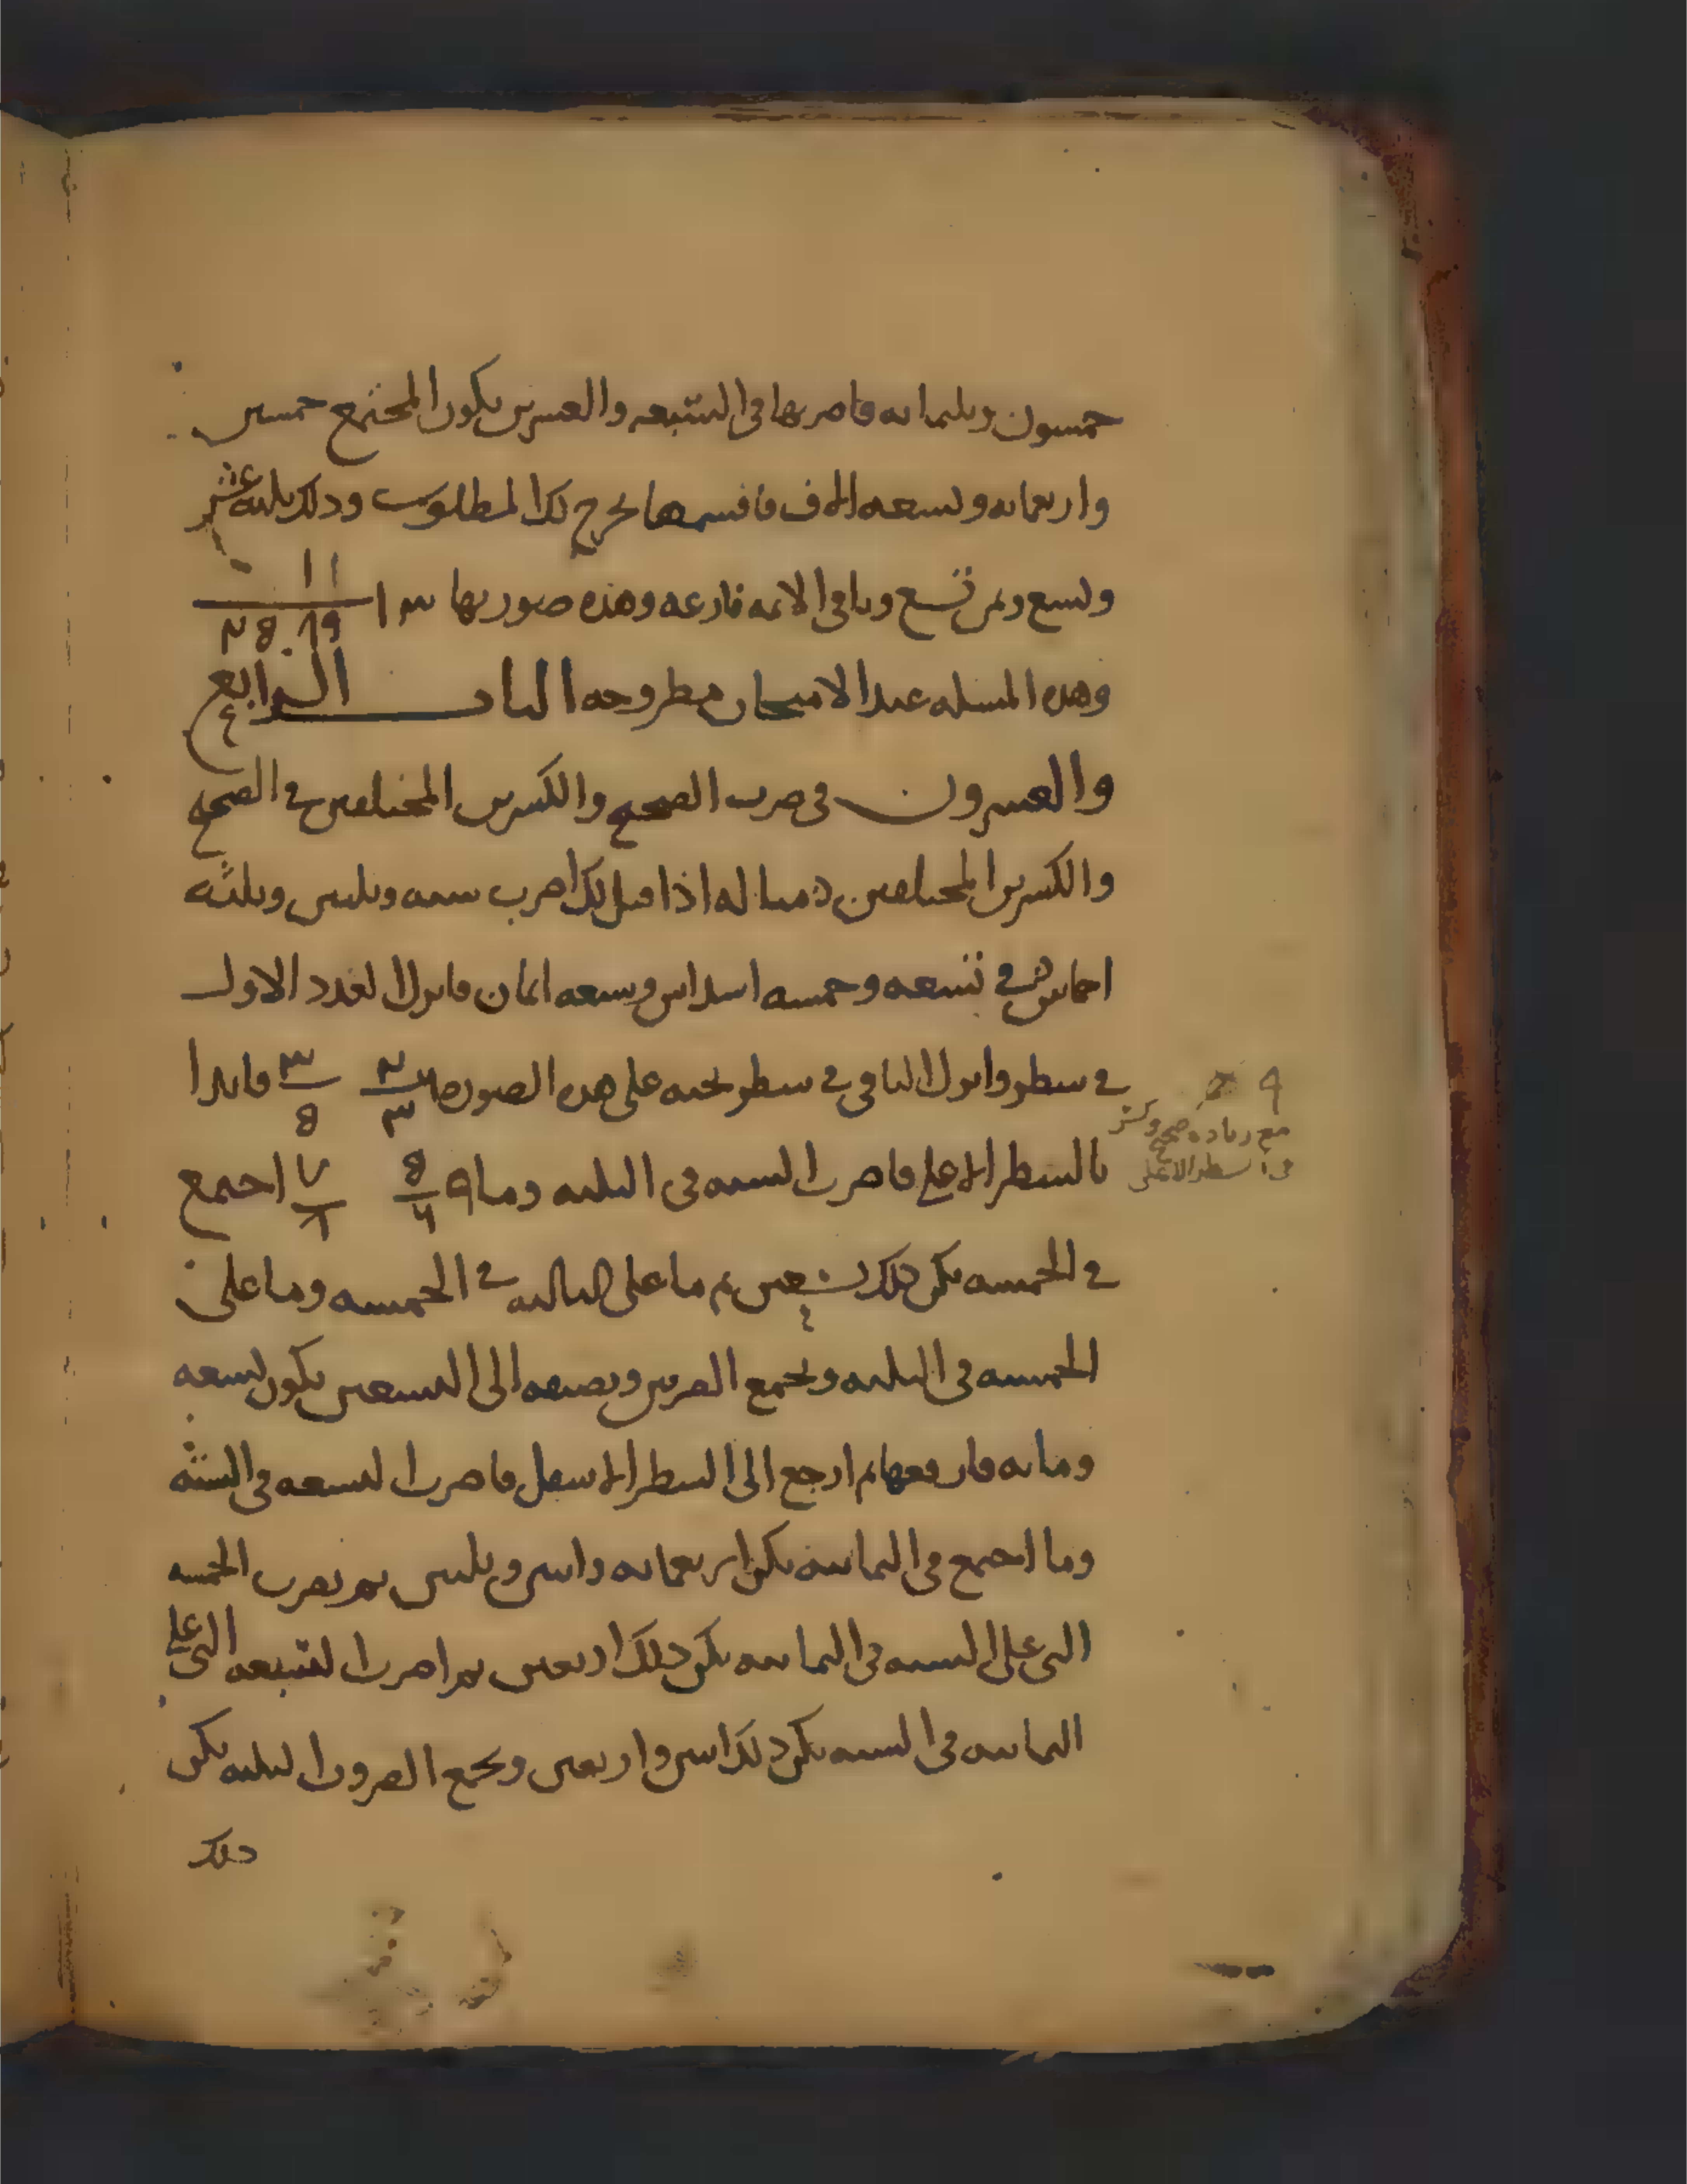 خمسون وثلثمايه فاضربها فى السبعه والعشرين يكون المجتمع خمسين
واربعمايه وتسعه الاف فاقسمها يخرج لك المطلوب وذلك ثلثه عشر
وتسع وثمن تسع وباقى الايمه فارغه وهذه صورتها ١٣ ١١
وهذه المسله عند الامتحان مطروحه الباب الرابع
والعشرون فى ضرب الصحيح والكسرين المختلفين فى الصحيح
والكسرين المختلفين مثاله اذا قيل لك اضرب سته وثلثين وثلثه
اخماس فى تسعه وخمسه اسداس وسبعه اثمان فانزل العدد الاول
فى سطر وانزل الثانى فى سطر تحته على هذه الصوره ٦ ٢/٣ ٣/٥ فابدا
بالسطر الاعلى فاضرب السته فى الثلثه وما ٩ ٥/٦ ٧/٨ اجتمع
فى الخمسه يكن ذلك تسعين ثم ما على الثالثه فى الخمسه وما على
الخمسه فى الثلثه وتجمع الضربين وتضيفه الى التسعين يكون تسعه
ومايه فارفعها ثم ارجع الى السطر الاسفل فاضرب التسعه فى السته
وما اجتمع فى الثمانيه يكن اربعمايه واثنين وثلثين ثم تضرب الخمسه
التى على السته فى الثمانيه يكن ذلك اربعين ثم اضرب السبعه التى على
الثمانيه فى السته يكن ذلك اثنين واربعين وتجمع الضروب الثلثه يكن
ذلك
مع زياده صحيح وكسر
فى السطر الاعلى